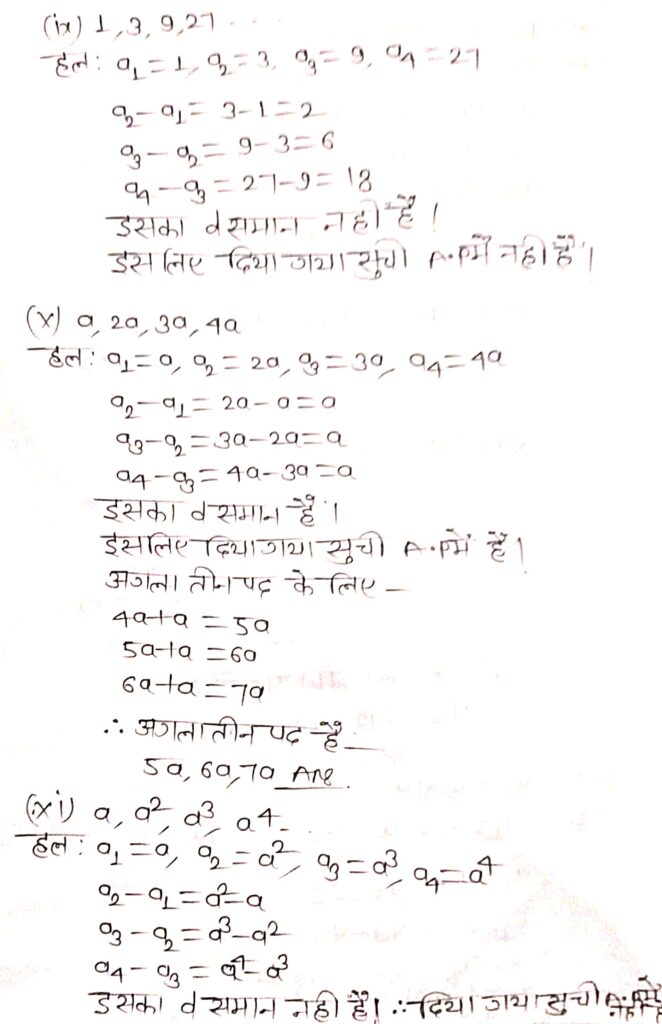 (ix) 1, 3, 9, 27 ...
हल: a₁ = 1, a₂ = 3, a₃ = 9, a₄ = 27
a₂ - a₁ = 3 - 1 = 2
a₃ - a₂ = 9 - 3 = 6
a₄ - a₃ = 27 - 9 = 18
इसका d समान नही है।
इसलिए दिया गया सुची A.P में नही है।
(x) a, 2a, 3a, 4a
हल: a₁ = a, a₂ = 2a, a₃ = 3a, a₄ = 4a
a₂ - a₁ = 2a - a = a
a₃ - a₂ = 3a - 2a = a
a₄ - a₃ = 4a - 3a = a
इसका d समान है।
इसलिए दिया गया सुची A.P में है।
अगला तीन पद के लिए -
4a + a = 5a
5a + a = 6a
6a + a = 7a
∴ अगला तीन पद है -
5a, 6a, 7a Ans
(xi) a, a², a³, a⁴ ..
हल: a₁ = a, a₂ = a², a₃ = a³, a₄ = a⁴
a₂ - a₁ = a² - a
a₃ - a₂ = a³ - a²
a₄ - a₃ = a⁴ - a³
इसका d समान नही है। ∴ दिया गया सुची A.P में नही है